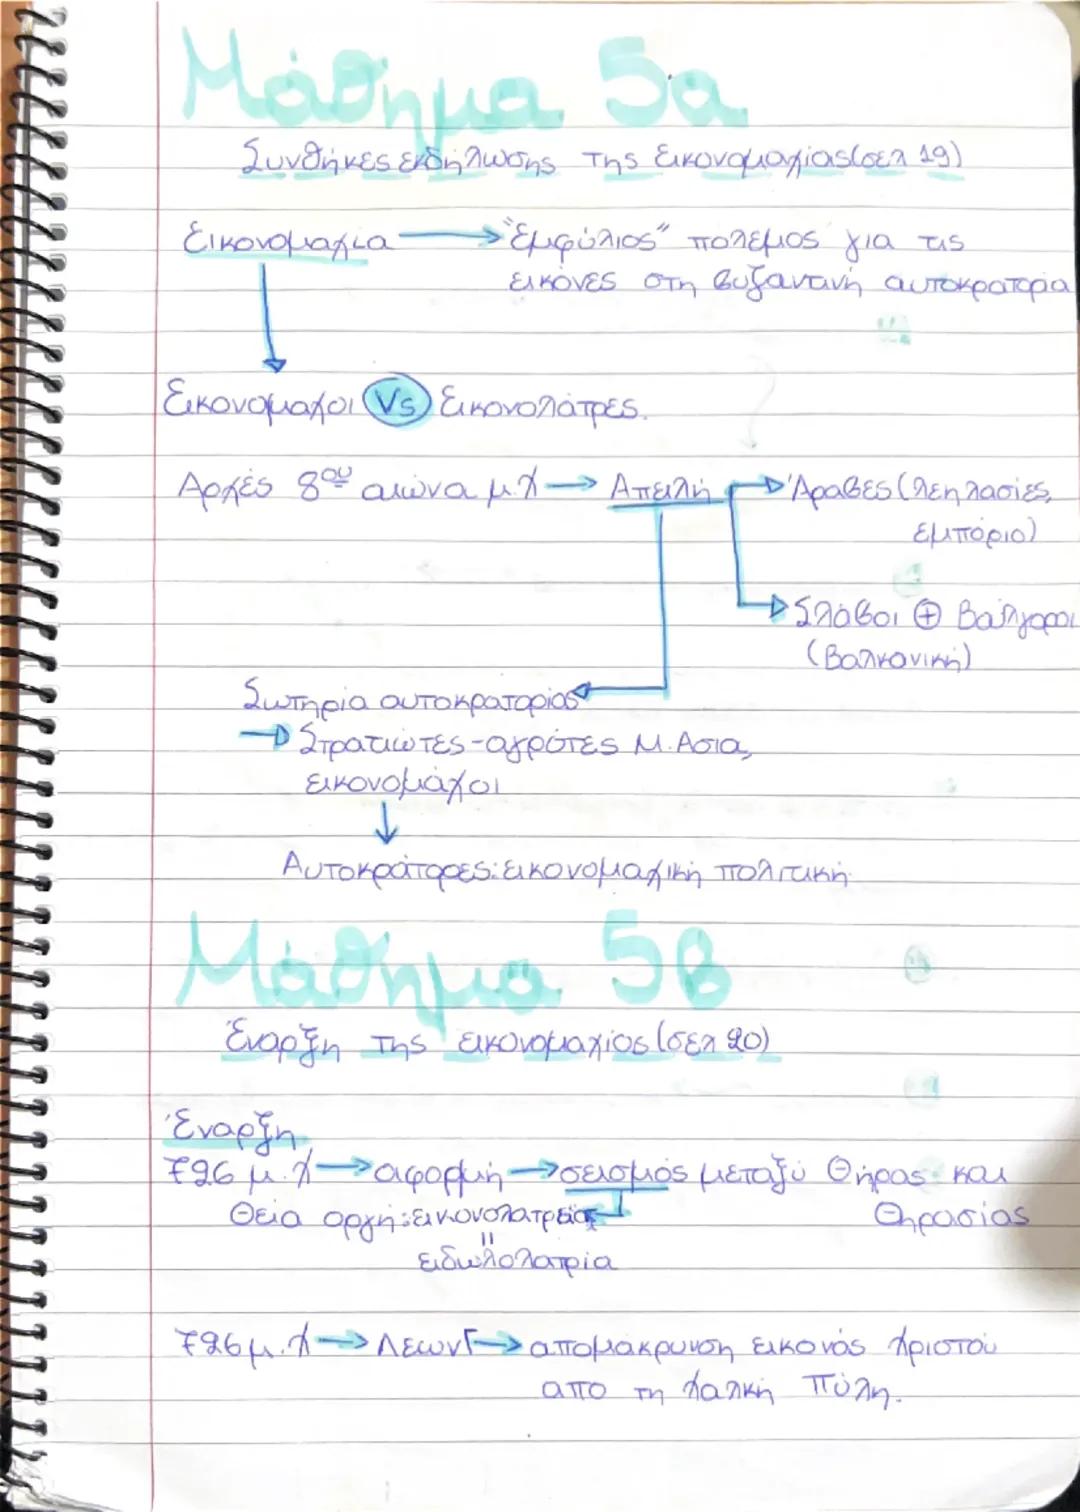 Μάθημα 5α
Συνθήκες εκδήλωσης της εικονομαχίας (σελ 19)
Εικονομαχία → "Εμφύλιος" πόλεμος για τις
εικόνες στη βυζαντινή αυτοκρατορία
Εικονομάχοι Vs Εικονολάτρες.
Αρχές 8ου αιώνα μ.Χ → Απειλή → Άραβες (λεηλασίες,
εμπόριο)
→ Σλάβοι ⊕ Βούλγαροι
(Βαλκανική)
Σωτηρία αυτοκρατορίας
→ Στρατιώτες-αγρότες Μ. Ασία,
εικονομάχοι
↓
Αυτοκράτορες: εικονομαχική πολιτική
Μάθημα 5β
Έναρξη της εικονομαχίας (σελ 20)
Έναρξη
726 μ.Χ → αφορμή → σεισμός μεταξύ Θήρας και
Θεία οργή: εικονολατρεία Θηρασίας
=
ειδωλολατρία
726 μ.Χ → Λέων Γ → απομάκρυνση εικόνας Χριστού
απο τη Χαλκή Πύλη.